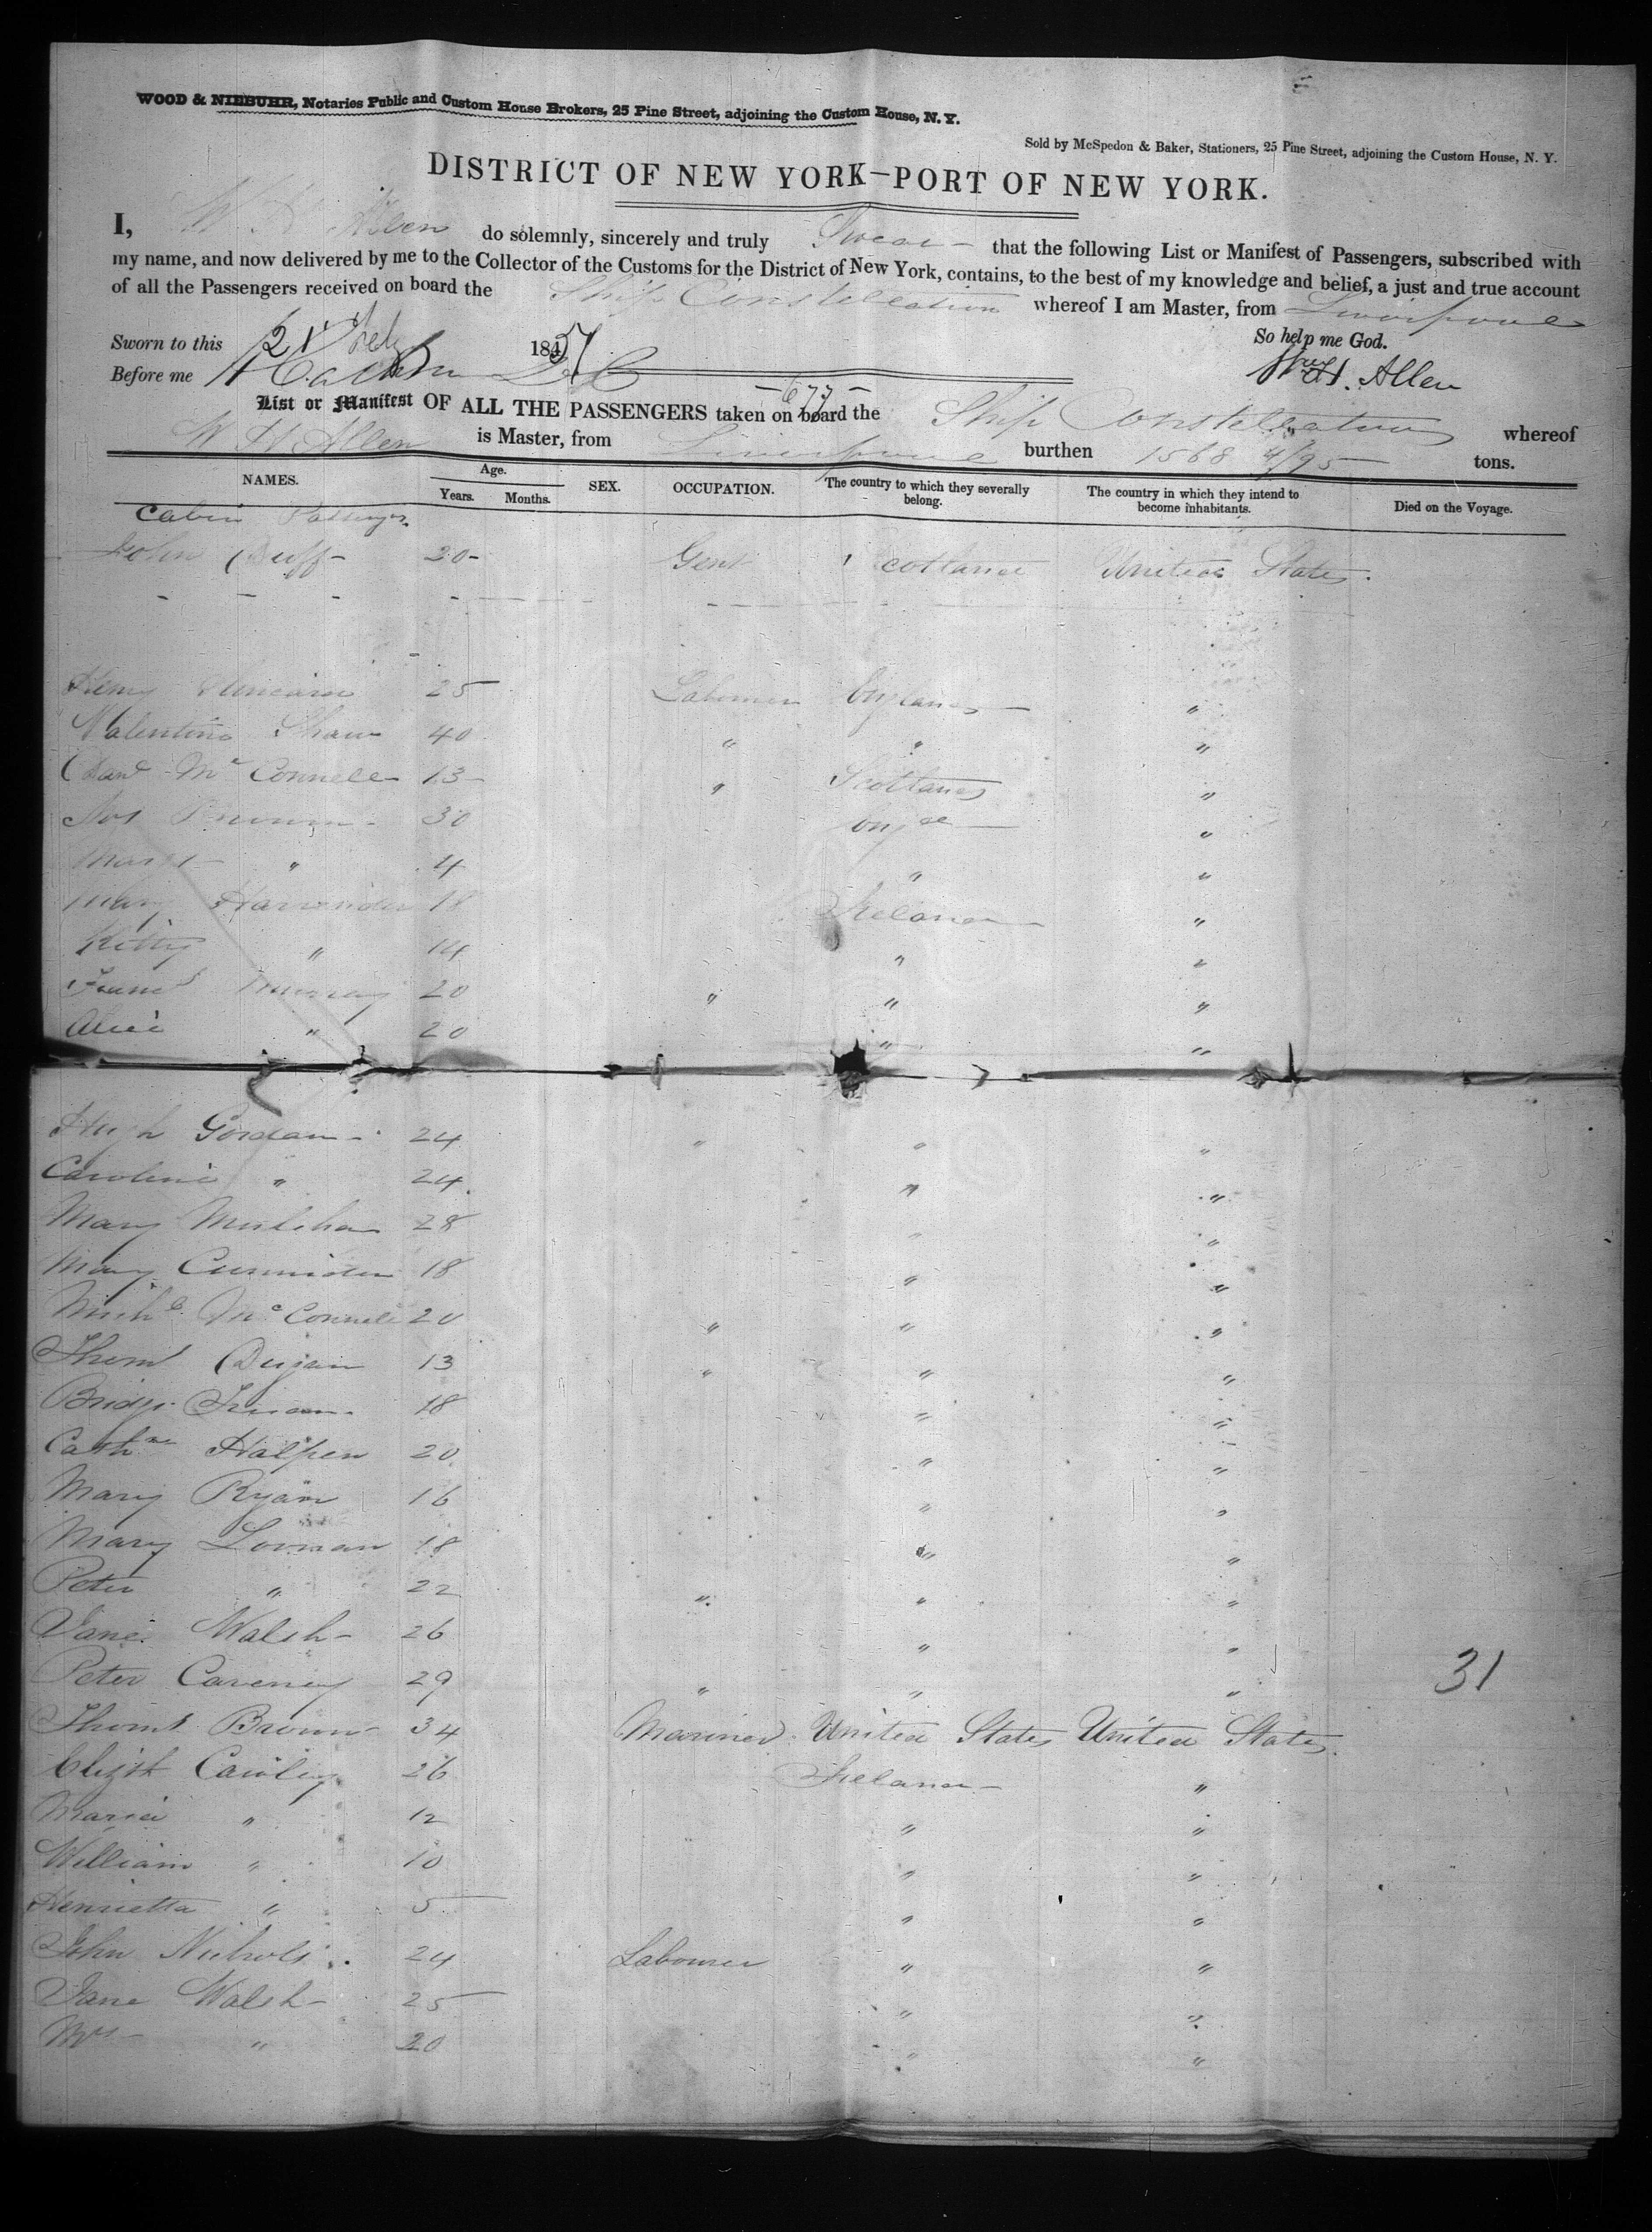 WOOD & NIEBUHR, Notaries Public and Custom House Brokers, 25 Pine Street, adjoining the Custom House, N. Y.
Sold by McSpedon & Baker, Stationers, 25 Pine Street, adjoining the Custom House, N. Y.
DISTRICT OF NEW YORK—PORT OF NEW YORK.
I, W H Allen do solemnly, sincerely and truly Swear that the following List or Manifest of Passengers, subscribed with
my name, and now delivered by me to the Collector of the Customs for the District of New York, contains, to the best of my knowledge and belief, a just and true account
of all the Passengers received on board the Ship Constellation whereof I am Master, from Liverpool
Sworn to this 21 185 So help me God.
Before me Wm H. Allen
- 677 -
List or Manifest OF ALL THE PASSENGERS taken on board the Ship Constellation whereof
W H Allen is Master, from Liverpool burthen 1568 4/95 tons.
NAMES. Age. Years. Months. SEX. OCCUPATION. The country to which they severally belong. The country in which they intend to become inhabitants. Died on the Voyage.
Cabin Passenger
John Duff 20 Gent Scotland United States
Henry 25 Labourer England "
Valentine Shaw 40 " " "
Mc Connell 13 " Scotland "
Brown 30 "
Margt " 4 " "
Mary 18 Ireland "
Kitty " 14 " "
Murray 20 " " "
Alice " 20 " "
Hugh Gordan 24 " " "
Caroline " 24 " "
Mary 28 " "
Mary 18 " "
Michl Mc Connell 20 " " "
Thoms Dugan 13 " " "
Bridgt 18 " "
Cathne Halpen 20 " "
Mary Ryan 16 " "
Mary Lorman 18 " "
Peter " 22 " " "
Jane Walsh 26 " "
Peter Caveney 29 " " "
31
Thoms Brown 34 Mariner United States United States
Elizth Cawley 26 Ireland "
Maria " 12 " "
William " 10 " "
Henrietta " 5 " "
John Nichols 24 Labourer " "
Jane Walsh 25 " "
Mrs " 20 " "